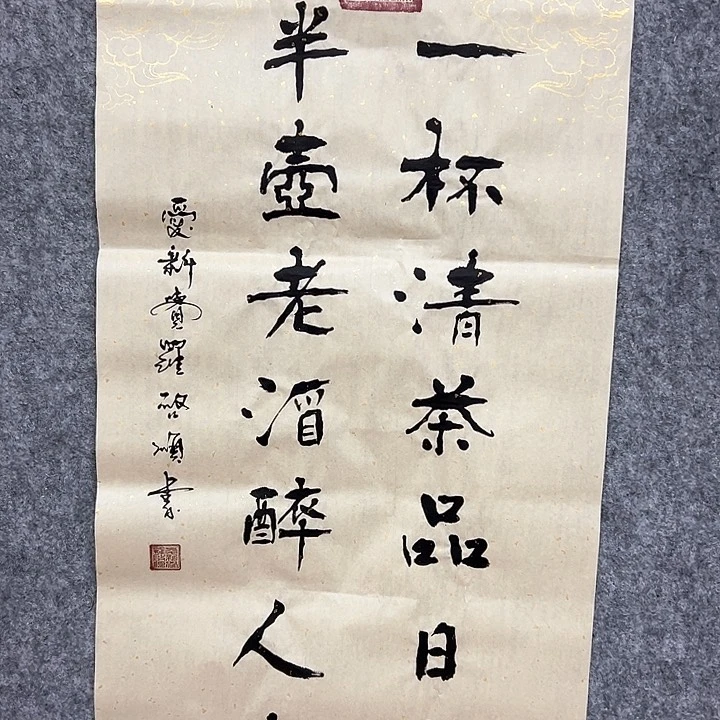 一杯清茶品日
半壺老酒醉人
愛新覺羅啓順書